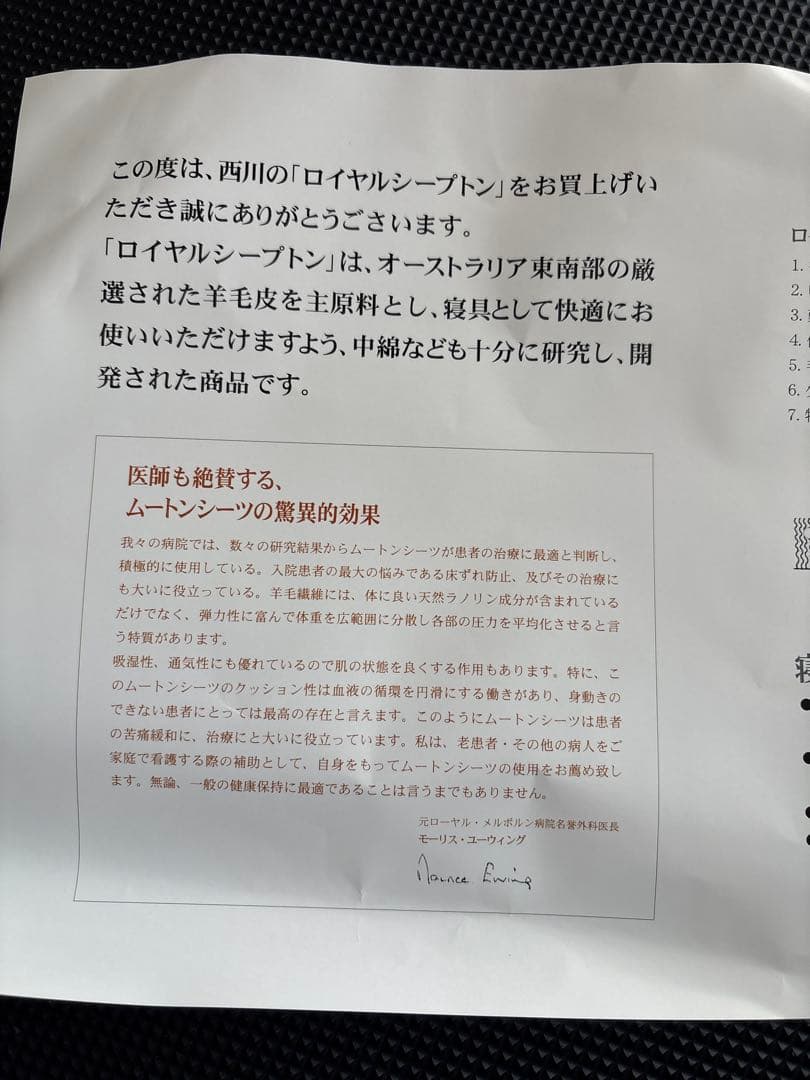 この度は、西川の「ロイヤルシープトン」をお買上げい
ただき誠にありがとうございます。
「ロイヤルシープトン」は、オーストラリア東南部の厳
選された羊毛皮を主原料とし、寝具として快適にお
使いいただけますよう、中綿なども十分に研究し、開
発された商品です。
医師も絶賛する、
ムートンシーツの驚異的効果
我々の病院では、数々の研究結果からムートンシーツが患者の治療に最適と判断し、
積極的に使用している。入院患者の最大の悩みである床ずれ防止、及びその治療に
も大いに役立っている。羊毛繊維には、体に良い天然ラノリン成分が含まれている
だけでなく、弾力性に富んで体重を広範囲に分散し各部の圧力を平均化させると言
う特質があります。
吸湿性、通気性にも優れているので肌の状態を良くする作用もあります。特に、こ
のムートンシーツのクッション性は血液の循環を円滑にする働きがあり、身動きの
できない患者にとっては最高の存在と言えます。このようにムートンシーツは患者
の苦痛緩和に、治療にと大いに役立っています。私は、老患者・その他の病人をご
家庭で看護する際の補助として、自身をもってムートンシーツの使用をお薦め致し
ます。無論、一般の健康保持に最適であることは言うまでもありません。
元ローヤル・メルボルン病院名誉外科医長
モーリス・ユーウィング
Maurice Ewing
1.
2.
3.
4.
5.
6.
7.